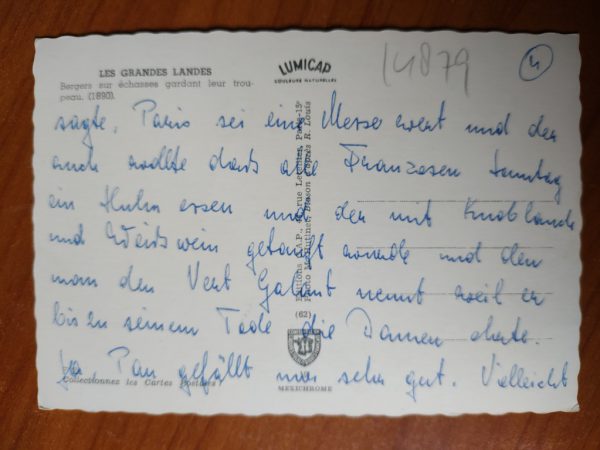 LES GRANDES LANDES
Bergers sur échasses gardant leur trou-
peau. (1890).
LUMICAP
COULEURS NATURELLES
14879
4
sagte, Paris sei eine Messe wert und der
auch wollte dass alle Franzosen Sonntag
ein Huhn essen und der mit Knoblauch
und Weisswein getauft wurde und den
man den Vert Galant nennt weil er
bis zu seinem Tode die Damen ehrte.
Ja Pau gefällt mir sehr gut. Vielleicht
Collectionnez les Cartes Postales
Paris-15e
R. Louis
(62)
MEXICHROME